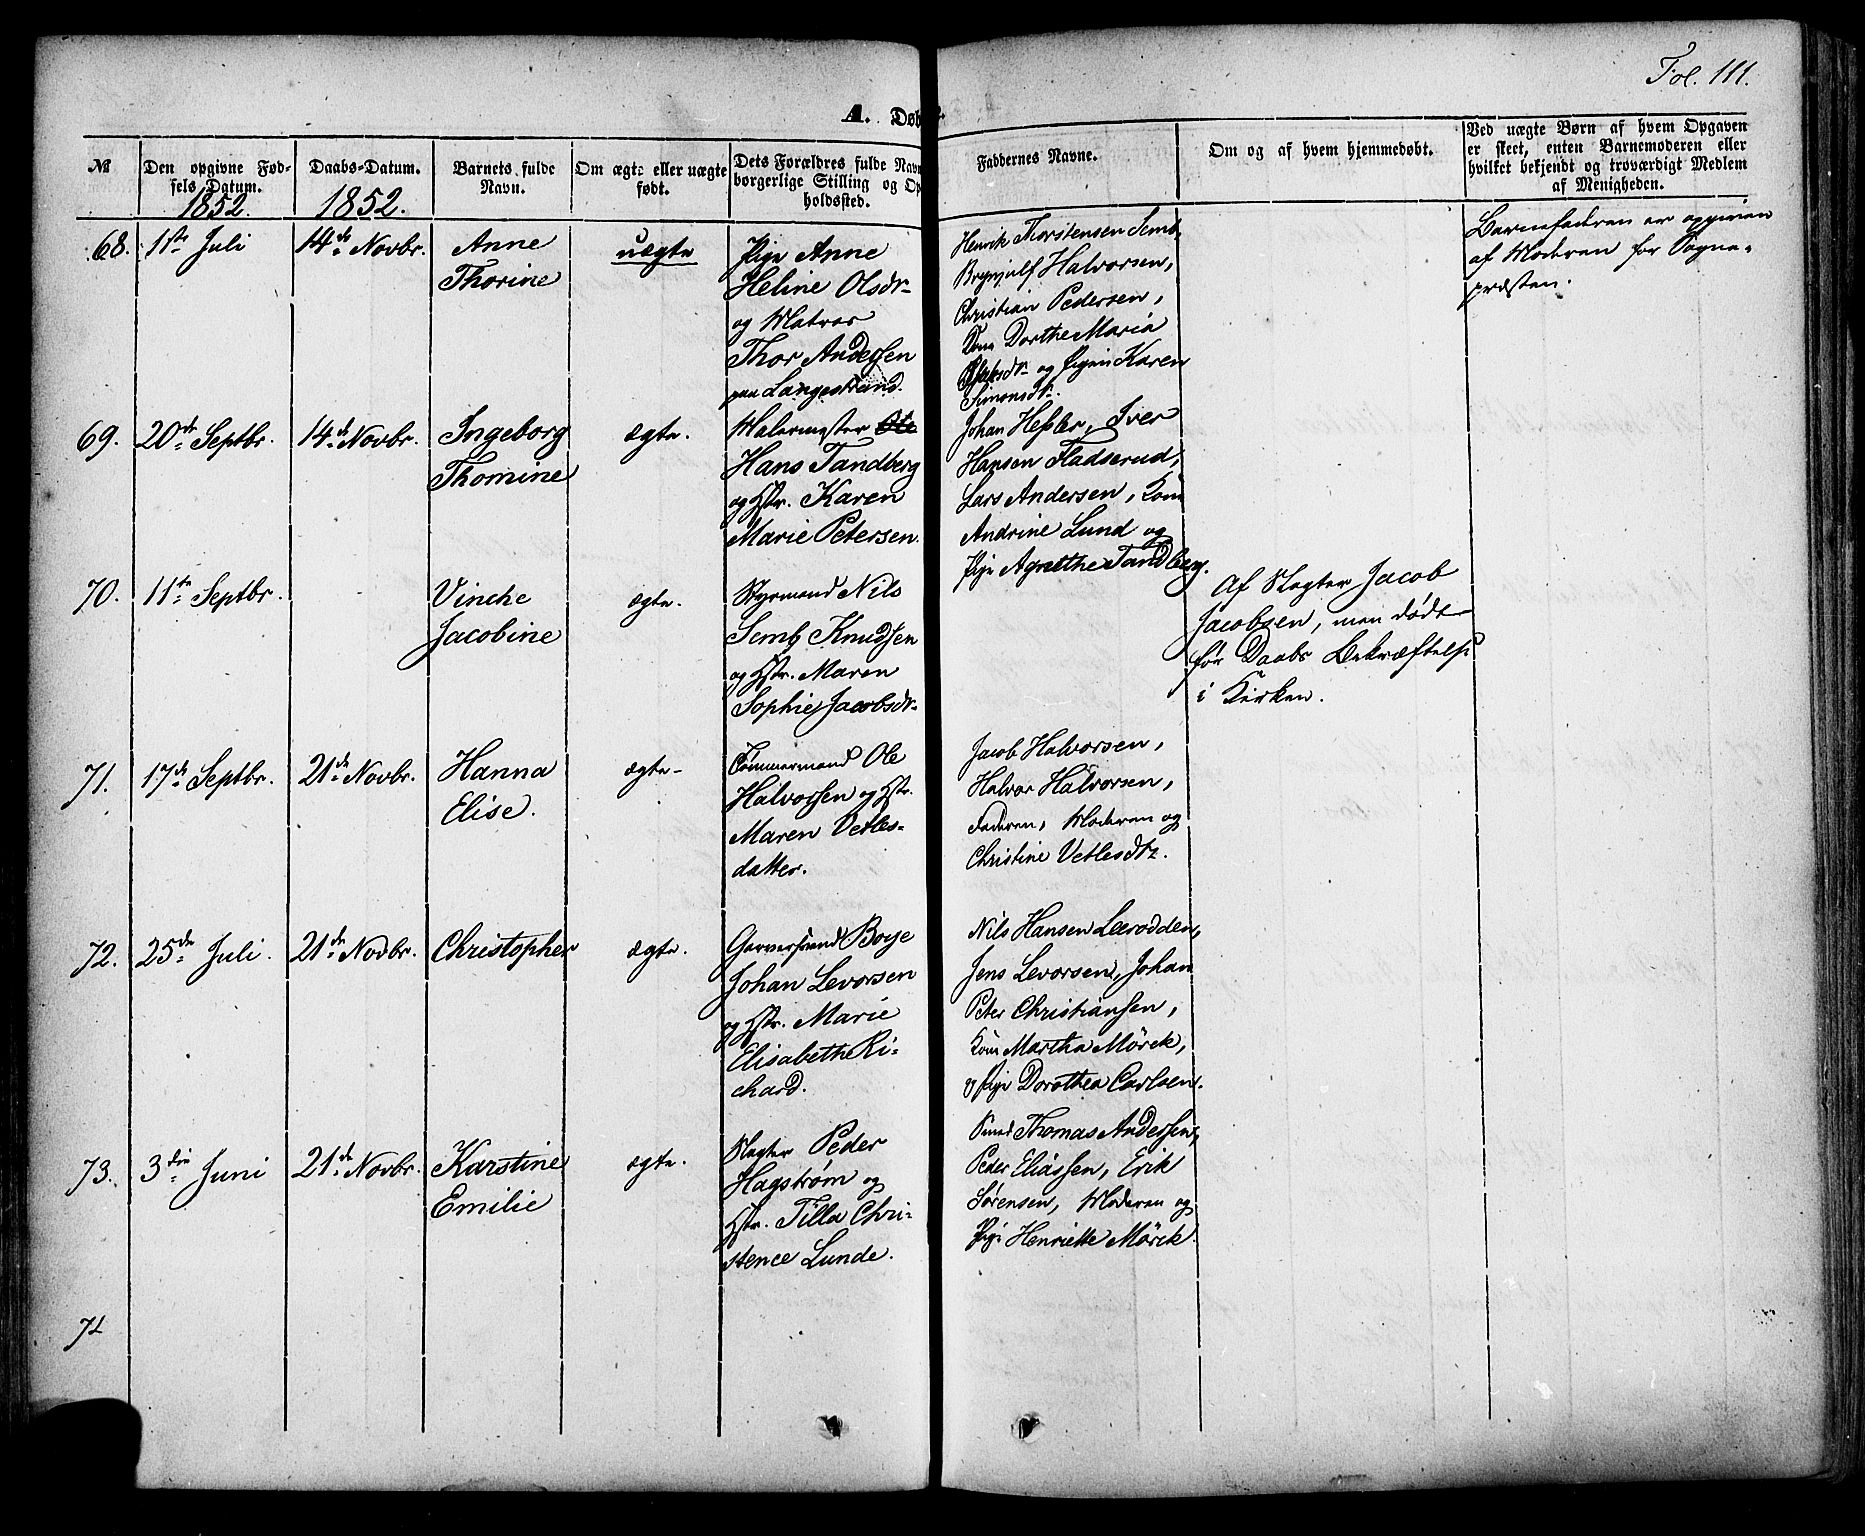 Fol. 111.
A. Døbte.
№
Den opgivne Fød-
sels Datum.
1852.
Daabs-Datum.
1852.
Barnets fulde
Navn.
Om ægte eller uægte
født.
Dets Forældres fulde Navn
borgerlige Stilling og Op
holdssted.
Faddernes Navne.
Om og af hvem hjemmedøbt.
Ved uægte Børn af hvem Opgaven
er skeet, enten Barnemoderen eller
hvilket bekjendt og troværdigt Medlem
af Menigheden.
68.
11te Juli
14de Novbr.
Anne
Thorine
uægte
Pige Anne
Heline Olsdr
og Matros
Thor Andersen
paa Langestrand.
Henrik Thorstensen Semb,
Brynjulf Halvorsen,
Christian Pedersen,
Dorthe Maria
og Pigen Karen
Simonsdr.
Barnefaderen er opgiven
af Moderen for Sogne-
præsten.
69.
20de Septbr.
14de Novbr.
Ingeborg
Thomine
ægte.
Malermester Ole
Hans Tandberg
og Hstr. Karen
Marie Petersen.
Johan Hesler, Iver
Hansen Fladserud,
Lars Andersen, Kone
Andrine Lund og
Pige Agnethe Tandberg.
70.
11te Septbr.
Vinche
Jacobine
ægte.
Styrmand Nils
Semb Knudsen
og Hstr. Maren
Sophie Jacobsdr
Af Slagter Jacob
Jacobsen, men døde
før Daabs Bekræftelse
i Kirken.
71.
17de Septbr.
21de Novbr.
Hanna
Elise.
ægte
Tømmermand Ole
Halvorsen og Hstr.
Maren Vetles-
datter.
Jacob Halvorsen,
Halvor Halvorsen,
Faderen, Moderen og
Christine Vetlesdtr.
72.
25de Juli.
21de Novbr.
Christopher
ægte.
Garversvend Boye
Johan Levorsen
og Hstr. Marie
Elisabeth Ri-
chard.
Nils Hansen Lærodden,
Jens Levorsen, Johan
Peter Christiansen,
Kone Martha Mörck,
Pige Dorothea Carlsen.
73.
3die Juni
21de Novbr.
Karstine
Emilie
ægte.
Slagter Peder
Hagstrøm og
Hstr. Tilla Chri-
stence Lunde.
Thomas Andersen,
Peder Eliassen, Erik
Sørensen, Moderen og
Pige Henriette Mörck.
74